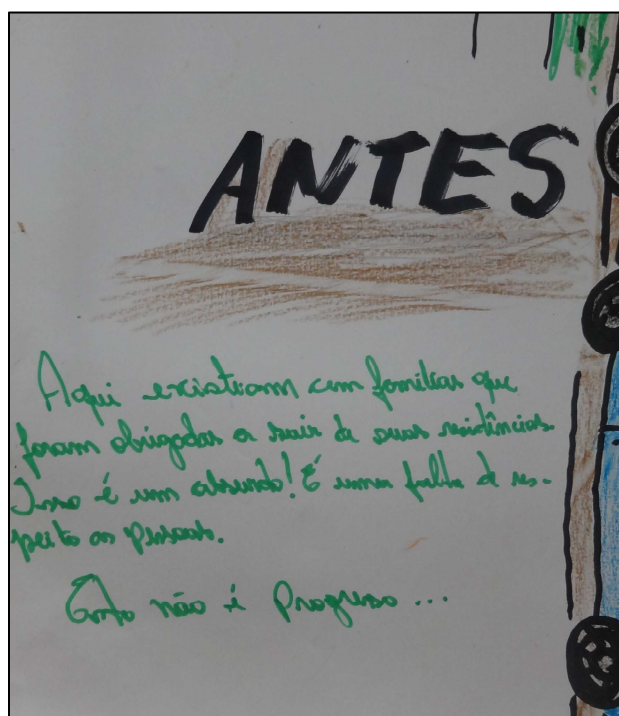 ANTES
Aqui existiam cem famílias que
foram obrigadas a sair de suas residências.
Isso é um absurdo! É uma falha de res-
peito as pessoas.
Isto não é Progresso ...